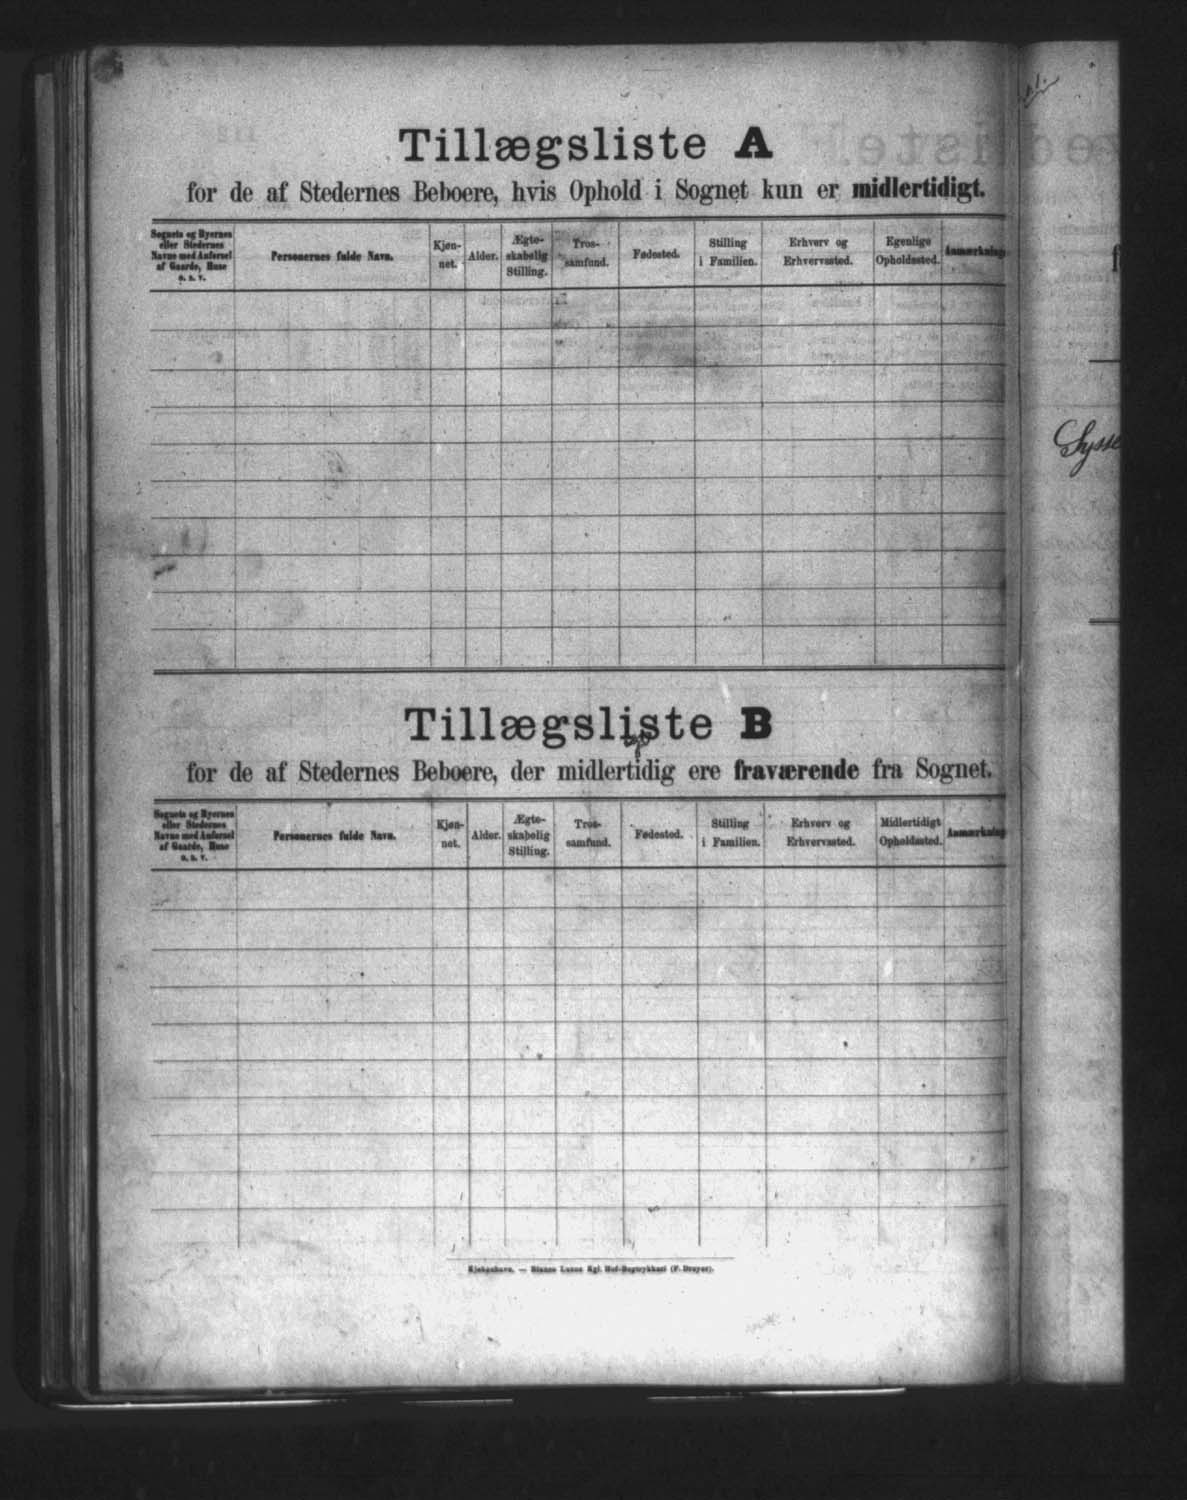 Tillægsliste A
for de af Stedernes Beboere, hvis Ophold i Sognet kun er midlertidigt.
Sognets og Byernes eller Stedernes Navne med Anførsel af Gaarde, Huse o. s. v.
Personernes fulde Navn.
Kjøn-
net.
Alder.
Ægte-
skabelig
Stilling.
Tros-
samfund.
Fødested.
Stilling
i Familien.
Erhverv og
Erhvervssted.
Egenlige
Opholdssted.
Anmærkning
Tillægsliste B
for de af Stedernes Beboere, der midlertidig ere fraværende fra Sognet.
Sognets og Byernes eller Stedernes Navne med Anførsel af Gaarde, Huse o. s. v.
Personernes fulde Navn.
Kjøn-
net.
Alder.
Ægte-
skabelig
Stilling.
Tros-
samfund.
Fødested.
Stilling
i Familien.
Erhverv og
Erhvervssted.
Midlertidigt
Opholdssted.
Anmærkning
Kjøbenhavn. — Bianco Lunos Kgl. Hof-Bogtrykkeri (F. Dreyer).
Sysse